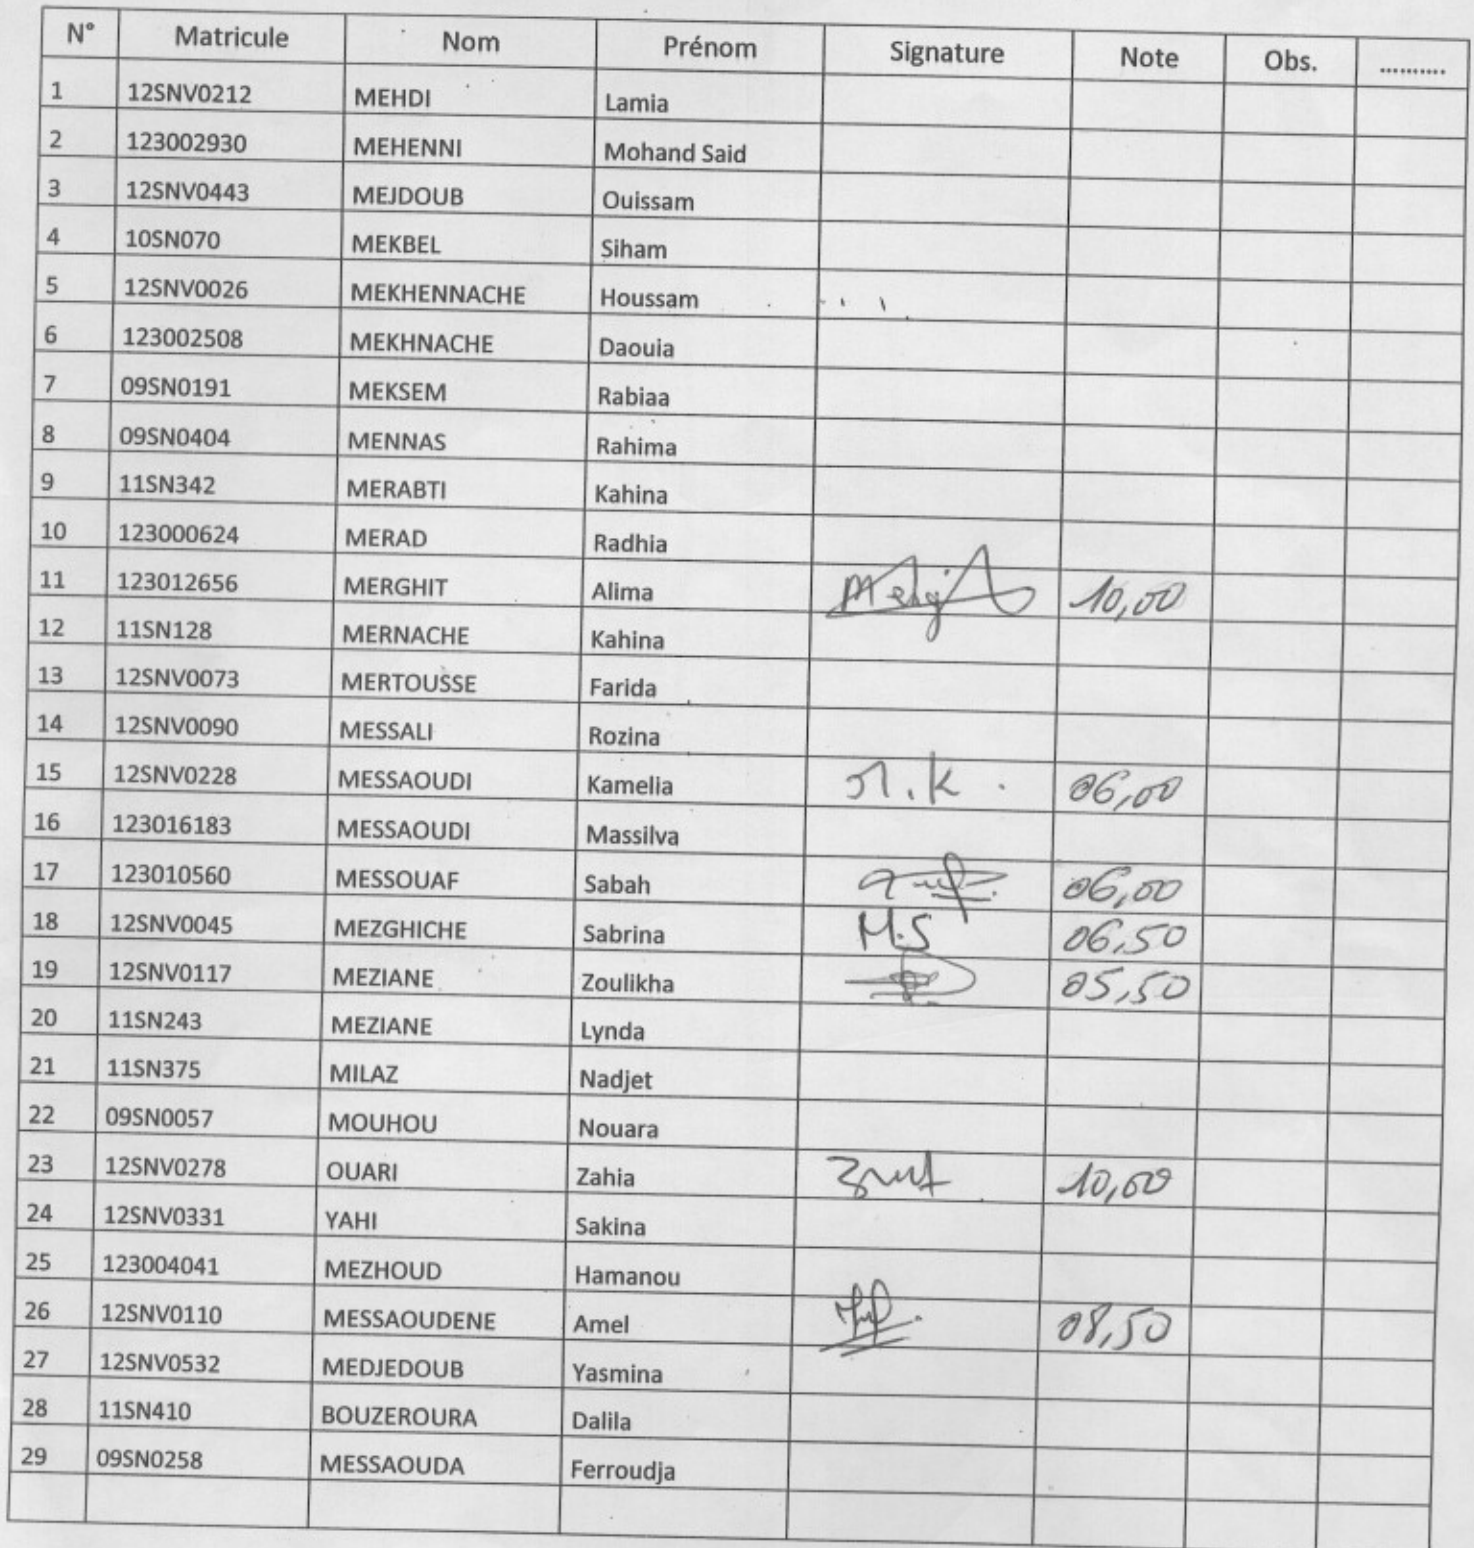 N° Matricule Nom Prénom Signature Note Obs. ..........
1 12SNV0212 MEHDI Lamia
2 123002930 MEHENNI Mohand Said
3 12SNV0443 MEJDOUB Ouissam
4 10SN070 MEKBEL Siham
5 12SNV0026 MEKHENNACHE Houssam
6 123002508 MEKHNACHE Daouia
7 09SN0191 MEKSEM Rabiaa
8 09SN0404 MENNAS Rahima
9 11SN342 MERABTI Kahina
10 123000624 MERAD Radhia
11 123012656 MERGHIT Alima 10,00
12 11SN128 MERNACHE Kahina
13 12SNV0073 MERTOUSSE Farida
14 12SNV0090 MESSALI Rozina
15 12SNV0228 MESSAOUDI Kamelia M.K. 06,00
16 123016183 MESSAOUDI Massilva
17 123010560 MESSOUAF Sabah 06,00
18 12SNV0045 MEZGHICHE Sabrina M.S 06,50
19 12SNV0117 MEZIANE Zoulikha 05,50
20 11SN243 MEZIANE Lynda
21 11SN375 MILAZ Nadjet
22 09SN0057 MOUHOU Nouara
23 12SNV0278 OUARI Zahia 10,00
24 12SNV0331 YAHI Sakina
25 123004041 MEZHOUD Hamanou
26 12SNV0110 MESSAOUDENE Amel 08,50
27 12SNV0532 MEDJEDOUB Yasmina
28 11SN410 BOUZEROURA Dalila
29 09SN0258 MESSAOUDA Ferroudja